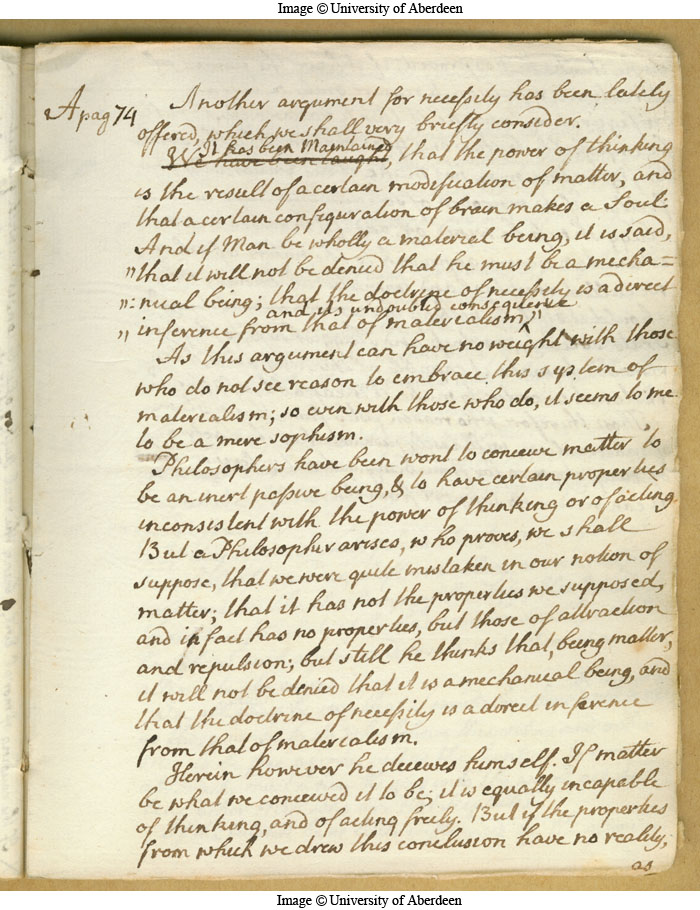 Image © University of Aberdeen
A pag 74
Another argument for necessity has been lately
offered, which we shall very briefly consider.
It has been Maintained
We have been taught, that the power of thinking
is the result of a certain modification of matter, and
that a certain configuration of brain makes a Soul.
And if Man be wholly a material being, it is said,
"that it will not be denied that he must be a mecha=
"=nical being; that the doctrine of necessity is a direct
and its undoubted consequence
" inference from that of materialism,^"
As this argument can have no weight with those
who do not see reason to embrace this system of
materialism; so even with those who do, it seems to me
to be a mere sophism.
Philosophers have been wont to conceive matter to
be an inert passive being, & to have certain properties
inconsistent with the power of thinking or of acting.
But a Philosopher arises, who proves, we shall
suppose, that we were quite mistaken in our notion of
matter; that it has not the properties we supposed,
and in fact has no properties, but those of attraction
and repulsion; but still he thinks that, being matter,
it will not be denied that it is a mechanical being, and
that the doctrine of necessity is a direct inference
from that of materialism.
Herein however he deceives himself. If matter
be what we conceived it to be; it is equally incapable
of thinking, and of acting freely. But if the properties
from which we drew this conclusion have no reality,
as
Image © University of Aberdeen